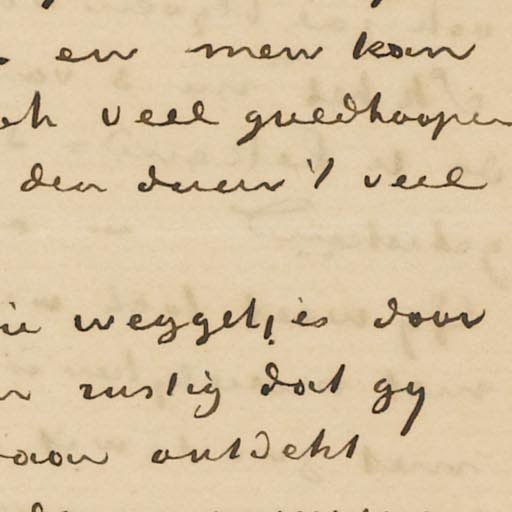 en men kan
veel goedkooper
den duer 't veel
weggetjes door
rustig dat gy
ontdekt